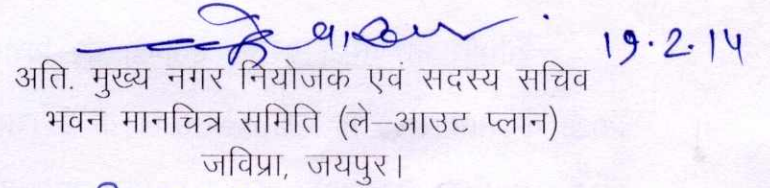 19.2.14
अति. मुख्य नगर नियोजक एवं सदस्य सचिव
भवन मानचित्र समिति (ले–आउट प्लान)
जविप्रा, जयपुर।